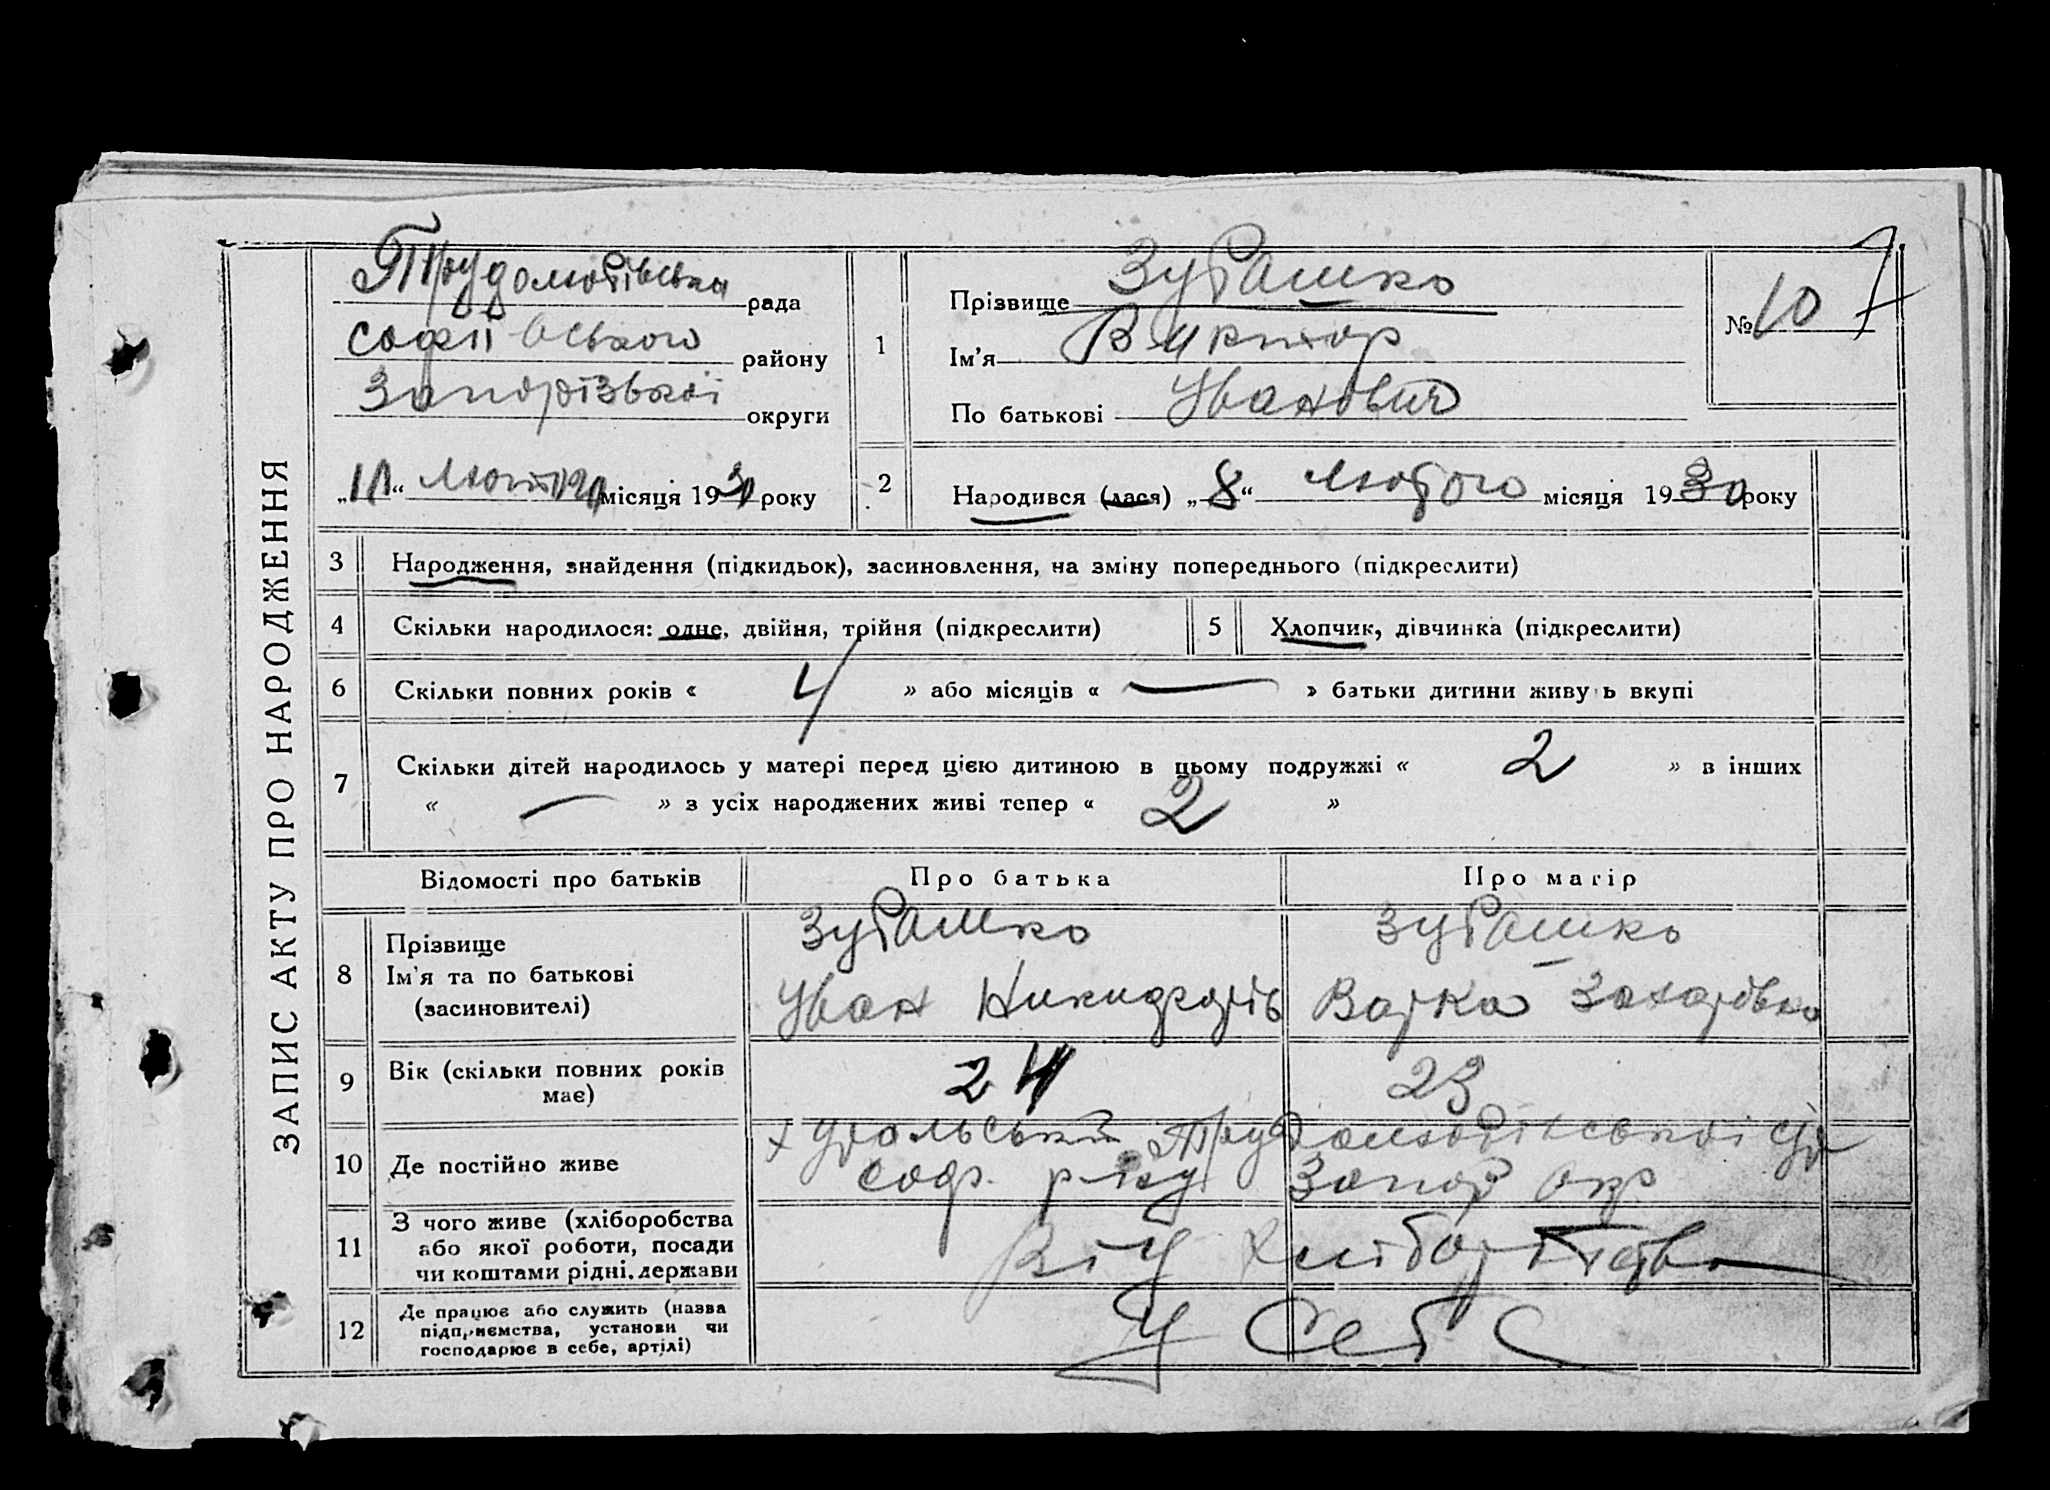 ЗАПИС АКТУ ПРО НАРОДЖЕННЯ
Трудолюбівська рада
Софіївського району
Запорізької округи
„10“ Лютого місяця 1930 року
1
Прізвище Зубашко
Ім’я Виктор
По батькові Иванович
№ 10
7
2 Народився (лася) „8“ лютого місяця 1930 року
3 Народження, знайдення (підкидьок), засиновлення, на зміну попереднього (підкреслити)
4 Скільки народилося: одне, двійня, трійня (підкреслити) 5 Хлопчик, дівчинка (підкреслити)
6 Скільки повних років « 4 » або місяців « — » батьки дитини живуть вкупі
7 Скільки дітей народилось у матері перед цією дитиною в цьому подружжі « 2 » в інших
« — » з усіх народжених живі тепер « 2 »
Відомості про батьків Про батька Про матір
8 Прізвище
Ім’я та по батькові
(засиновителі)
Зубашко
Иван Никифорів
Зубашко
Варка Захарівна
9 Вік (скільки повних років
має)
24 23
10 Де постійно живе
Трудолюбівської с/р
Соф. р-ну Запор окр
11 З чого живе (хліборобства
або якої роботи, посади
чи коштами рідні, держави
Від хліборобства
12 Де працює або служить (назва
підприємства, установи чи
господарює в себе, артілі)
У себе